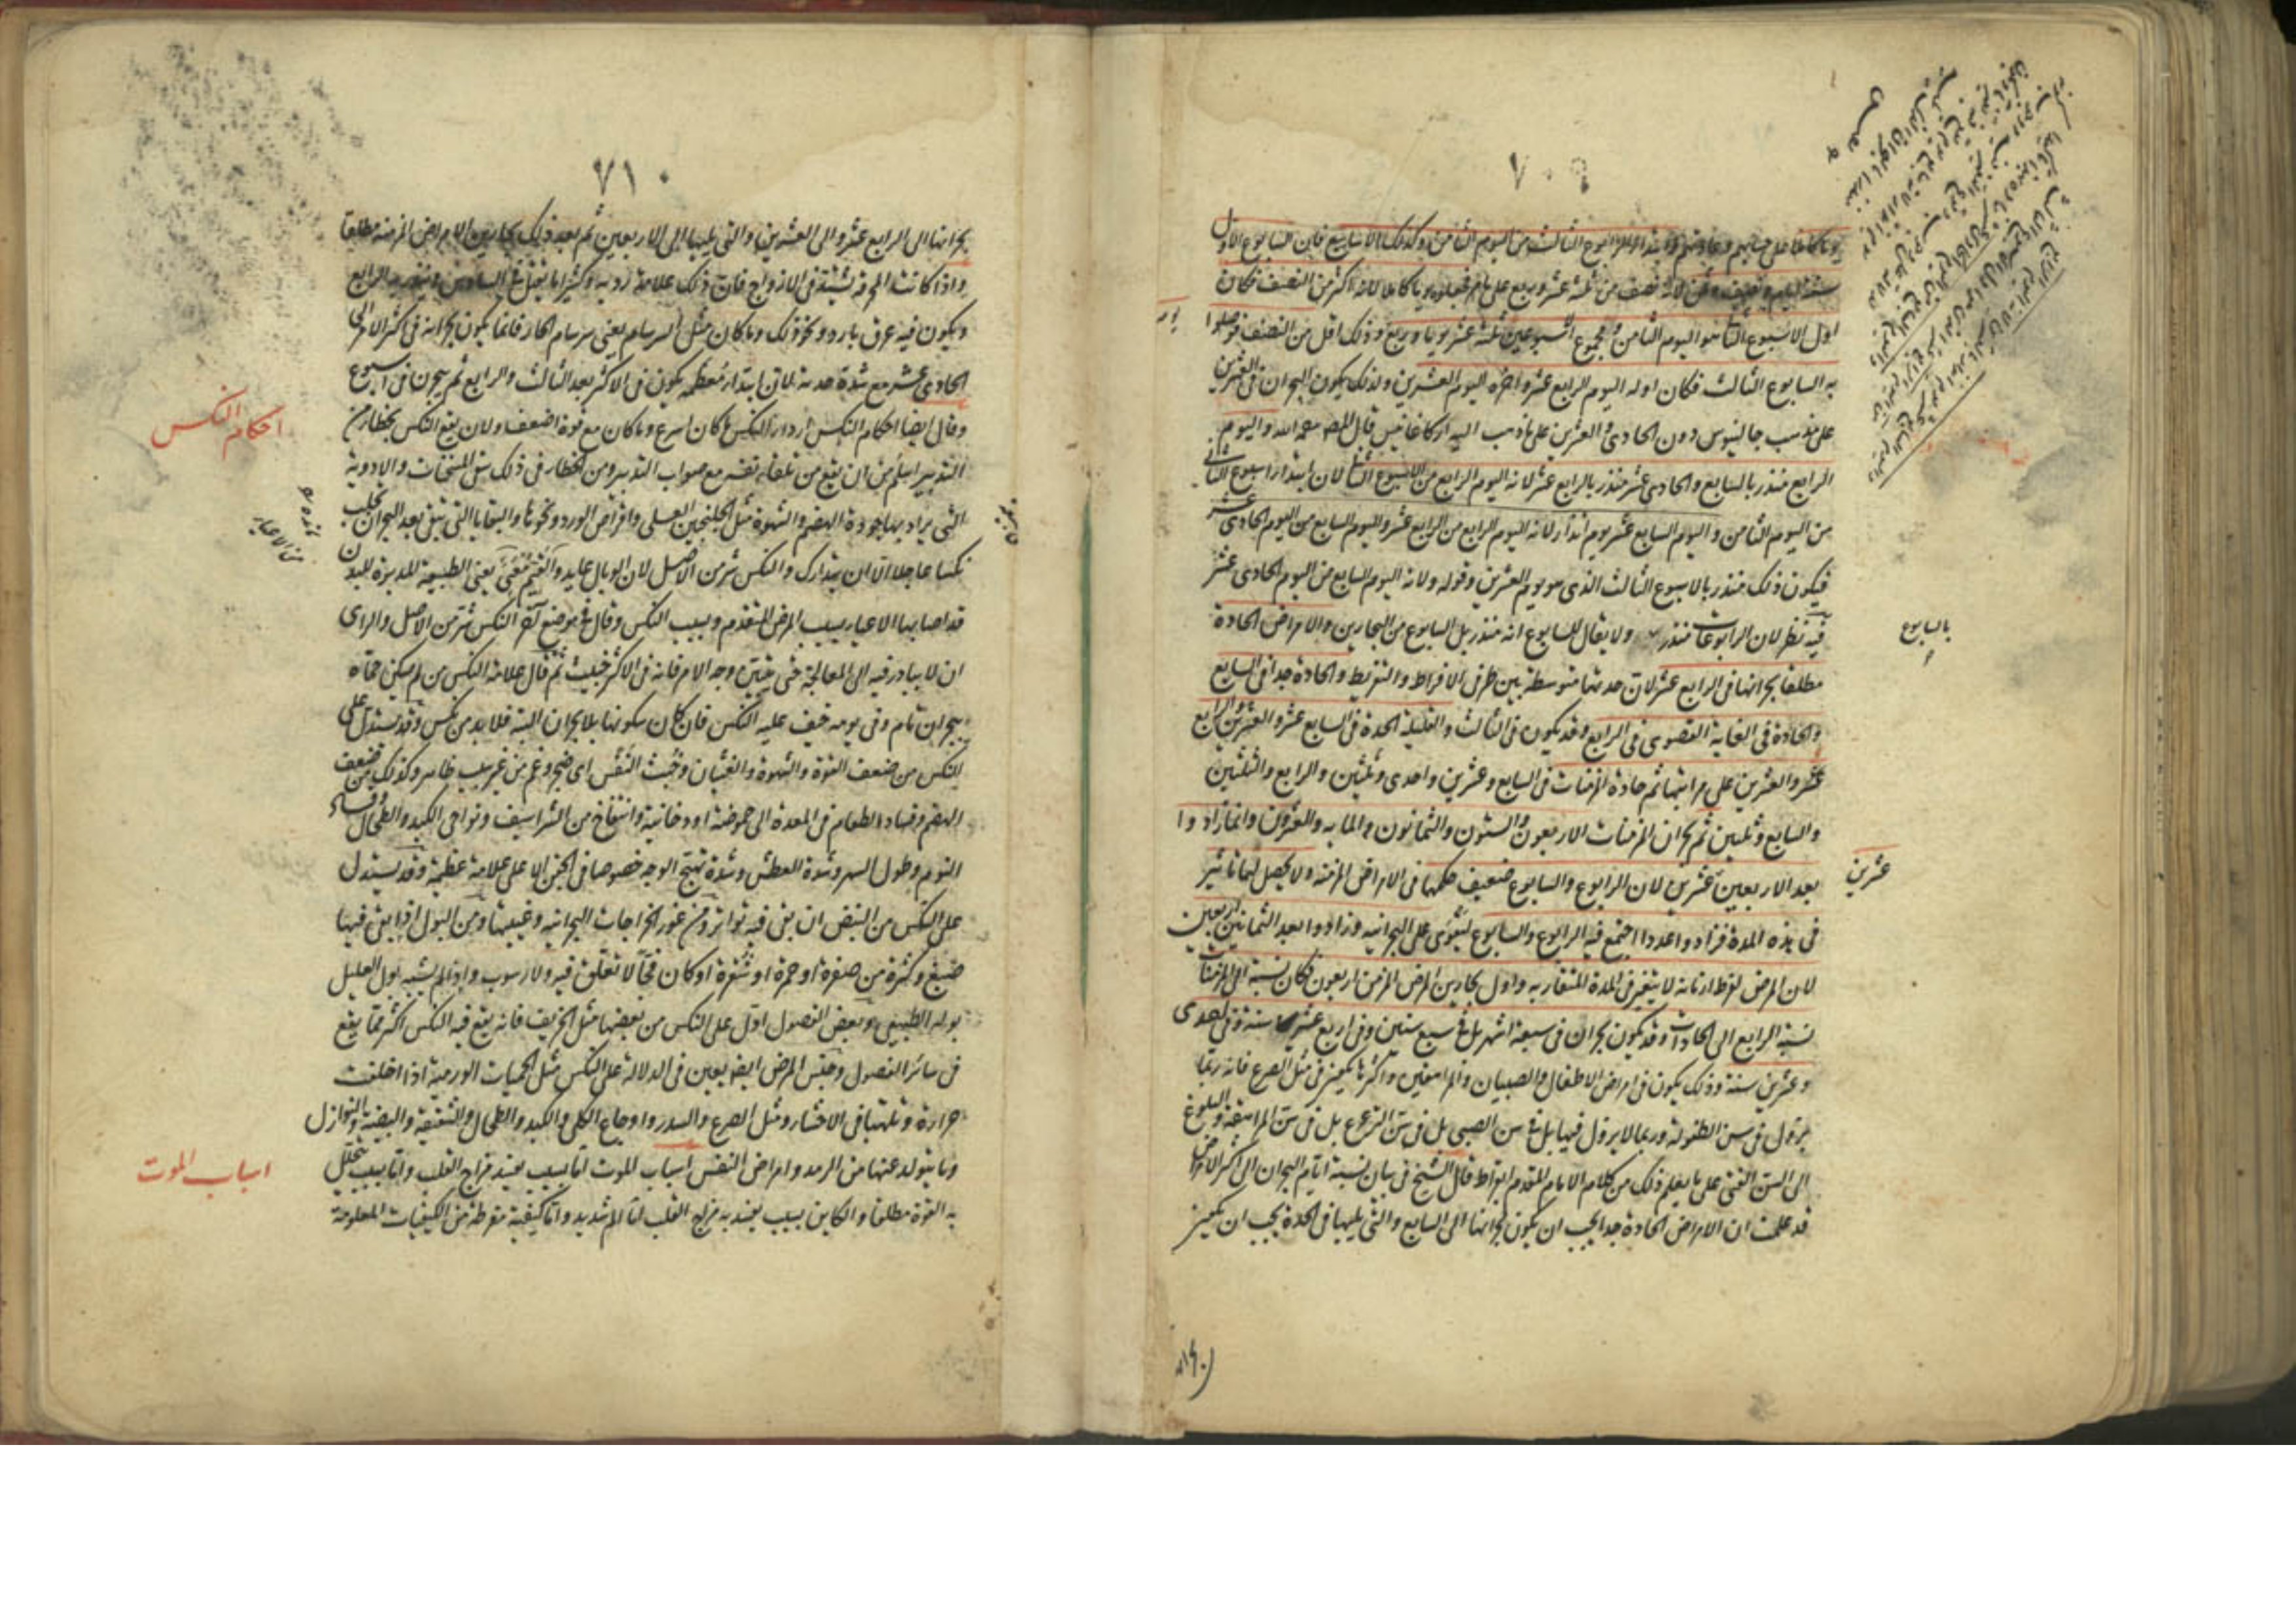 ٧٠٩
اول الاسبوع الثانى هو اليوم الثامن ومجموع الاسبوعين ثلثة عشر يوما وربع وذلك اقل من النصف فوصلوا
به السابوع الثالث فكان اوله اليوم الرابع عشر واخره اليوم العشرين ولذلك يكون البحران فى العشرين
على مذهب جالينوس دون الحادى والعشرين على ما ذهب اليه اركاغانيس قال المص رحمه الله واليوم
الرابع منذر بالسابع والحادى عشر منذر بالرابع عشر لانه اليوم الرابع من الاسبوع الثانى لان ابتداء اسبوع الثانى
من اليوم الثامن واليوم السابع عشر يوم انذار لانه اليوم الرابع من الرابع عشر واليوم السابع من اليوم الحادى عشر
فيكون ذلك منذر بالاسبوع الثالث الذى هو يوم العشرين وقوله ولانه اليوم السابع من اليوم الحادى عشر
فيه نظر لان الرابوعات منذر ولا يقال للسابوع انه منذر بل السابوع من البحارين والامراض الحادة
بالسابوع
مطلقا بحرانها فى الرابع عشر لان حدتها متوسطة بين طرفى الافراط والتفريط والحادة جدا فى السابع
والحادة فى الغاية القصوى فى الرابع وقد يكون فى الثالث والقليلة الحدة فى السابع عشر والعشرين والرابع
عشر والعشرين على مراتبها ثم حادة المزمنات فى السابع وعشرين واحدى وثلثين والرابع والثلثين
والسابع وثلثين ثم بحران المزمنات الاربعون والستون والثمانون والمايه والعشرون وانما زادوا
بعد الاربعين عشرين لان الرابوع والسابوع ضعيف حكمها فى الامراض المزمنة ولا يحصل لهما تاثير
عشرين
فى هذه المدة فزادوا عددا اجتمع فيه الرابوع والسابوع لتقوى على البحرانيه وزادوا بعد الثمانين اربعين
لان المرض لفرط ازمانه لا يتغير فى المدة المتقاربه واول بحارين المرض المزمن اربعون فكان نسبة الى المزمنات
نسبة الرابع الى الحادات وقد يكون بحران فى سبعة اشهر بل فى سبع سنين وفى اربع عشر سنة وفى احدى
وعشرين سنة وذلك يكون فى امراض الاطفال والصبيان والمراهقين واكثرها يكون فى مثل الصرع فانه ربما
يزول فى سن الطفولة وربما لا يزول فيها بل فى سن الصبى بل فى سن الترعرع بل فى سن المراهقة والبلوغ
الى السن الفتى على ما يعلم ذلك من كلام الامام المتقدم ابقراط قال الشيخ فى بيان نسبة ايام البحران الى اكثر الامراض
قد علمت ان الامراض الحادة جدا يجب ان يكون بحرانها الى السابع والتى يليها فى الحدة يجب ان يكون
٧١٠
بحرانها الى الرابع عشر والى العشرين والتى يليها الى الاربعين ثم بعد ذلك بحارين الامراض المزمنة مطلقا
واذا كانت المحرقة تشتد فى الازواج فان ذلك علامة رديه وكثيرا ما يقتل فى السادس وينذر به الرابع
ويكون فيه عرق بارد ونحو ذلك وما كان مثل السرسام يعنى سرسام الحار فانما يكون بحرانه فى اكثر الامر الى
الحادى عشر مع شدة حدته لان ابتداء معظمه يكون فى الاكثر بعد الثالث والرابع ثم يبحرن فى اسبوع
وقال ايضا احكام النكس اردأ النكس ما كان اسرع وما كان مع قوة اضعف ولان يقع النكس بخطأ من
احكام النكس
التدبير اسلم من ان يقع من تلقاء نفسه مع صواب التدبير ومن الخطأ فى ذلك سقى المسخنات والادوية
التى يراد بها جودة الهضم والشهوة مثل الجلنجبين العسلى واقراص الورد ونحوها والبقايا التى تبقى بعد البحران تجلب
نكسا عاجلا الا ان يتدارك والنكس شر من الاصل لان الوبال عايد والقيم معيى يعنى الطبيعة المدبرة للبدن
قد اصابها الاعياء بسبب المرض المتقدم وبسبب النكس وقال فى موضع آخر النكس شر من الاصل والراى
ان لا يبادر فيه الى المعالجة حتى يتبين وجه الامر فانه فى الاكثر خبيث ثم قال علامة النكس من لم يسكن حماه
ببحران تام وفى يومه خيف عليه النكس فان كان سكونها بلا بحران البتة فلا بد من نكس وقد يستدل على
النكس من ضعف القوة والشهوة والغثيان وخبث النفس اى ضجر وغم من غير سبب ظاهر وكذلك من ضعف
الهضم وفساد الطعام فى المعدة الى حموضة او دخانية وانتفاخ من الشراسيف ونواحى الكبد والطحال وفساد
النوم وطول السهر وشدة العطش وشدة تهيج الوجه خصوصا فى الجفن الاعلى علامة عظيمة وقد يستدل
على النكس من النبض ان بقى فيه تواتر ومن غور الخراجات البحرانيه وغيبتها ومن البول اذا بقى فيها
صبغ وكثرة من صفرة او حمرة او شقرة او كان فجا لا تعلق فيه ولا رسوب واذا لم يشبه بول العليل
بوله الطبيعى وبعض الفصول ادل على النكس من بعضها مثل الخريف فانه يقع فيه النكس اكثر مما يقع
فى سائر الفصول وجنس المرض ايضا يعين فى الدلالة على النكس مثل الحميات الورمية اذا اخلفت
حرارة وتلهبا فى الاحشاء ومثل الصرع والسدر واوجاع الكلى والكبد والطحال والشقيقة والبيضة والنوازل
وما يتولد عنها من الرمد وامراض النفس اسباب الموت اما بسبب يفسد مزاج القلب واما بسبب تحلل
اسباب الموت
به القوة مطلقا والكاين بسبب يفسد به مزاج القلب اما الم شديد واما كيفية مفرطة من الكيفيات المعلومة